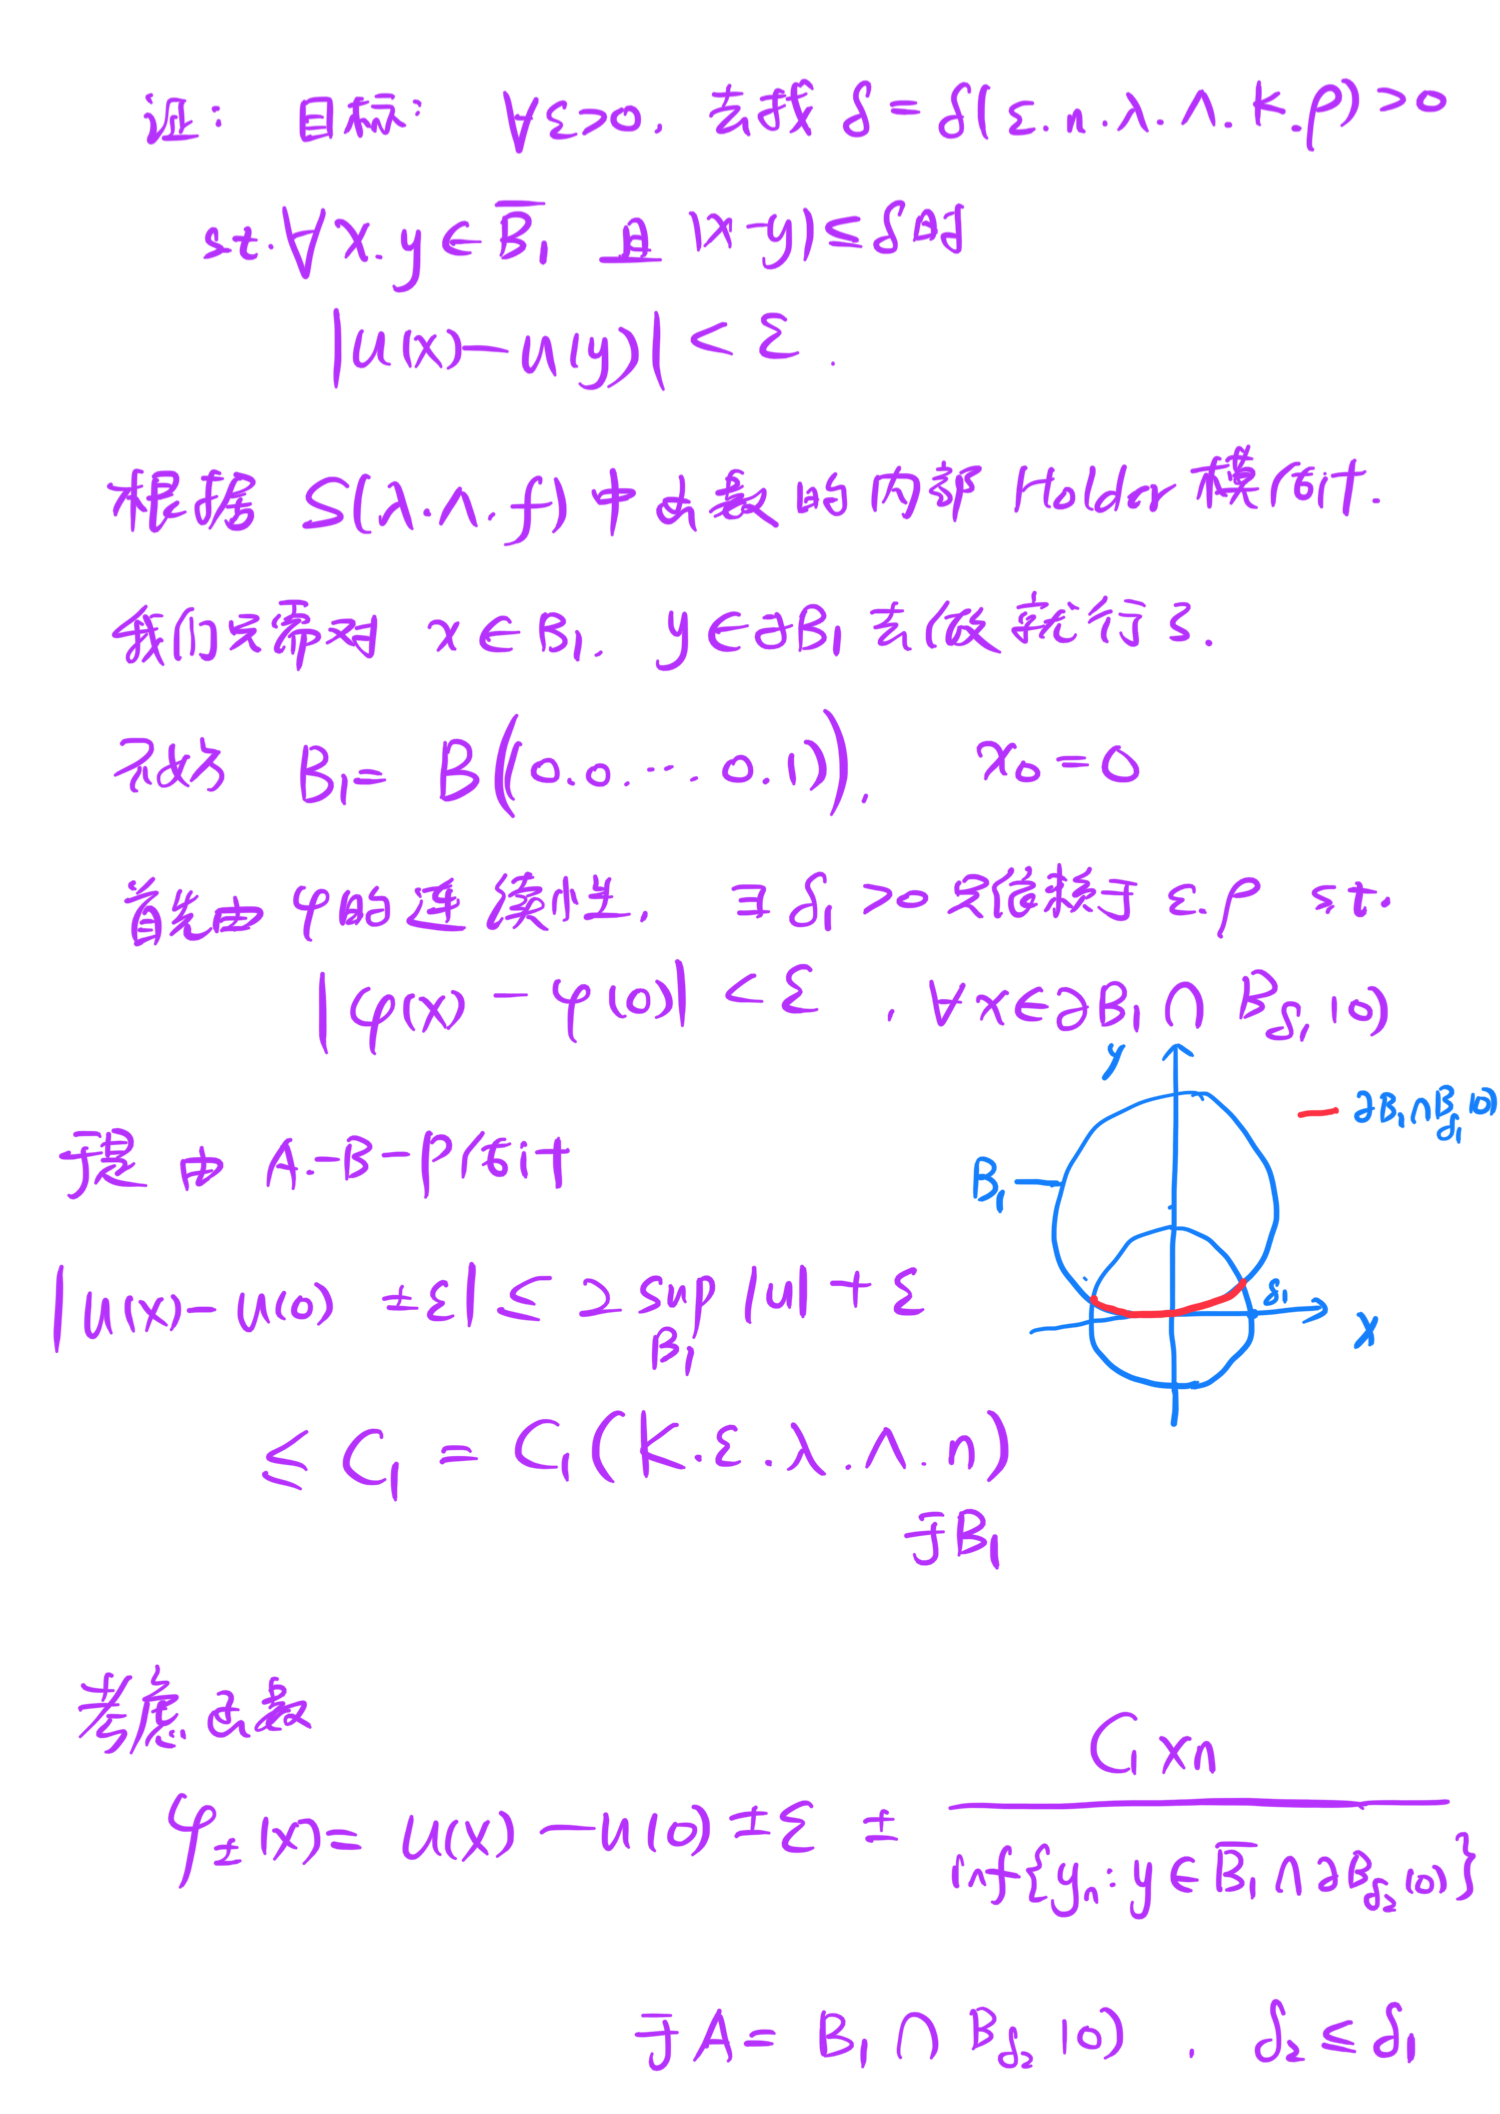 证: 目标: ∀ε>0, 去找 δ = δ(ε.n.λ.Λ.K.ρ) >0
s.t. ∀x.y ∈ B̅₁ 且 |x-y| ≤ δ 时
|u(x) - u(y)| < ε.
根据 S(λ.Λ.f) 中函数的内部 Holder 模估计.
我们只需对 x∈B₁. y∈∂B₁ 去做就行了.
不妨 B₁ = B((0.0.….0.1)), x₀ = 0
首先由 φ的连续性, ∃ δ₁ >0 只依赖于 ε.ρ s.t.
|φ(x) - φ(0)| < ε , ∀x∈∂B₁ ∩ B_δ₁(0)
y
— ∂B₁∩B_δ₁(0)
B₁
δ₁
x
于是 由 A-B-P估计
|u(x) - u(0) ±ε| ≤ 2 sup_B₁ |u| + ε
≤ C₁ = C₁(K.ε.λ.Λ.n)
于B₁
考虑函数
φ±(x) = u(x) - u(0) ±ε ± C₁xn / inf{yn: y∈B̅₁∩∂B_δ₂(0)}
于 A = B₁ ∩ B_δ₂(0) , δ₂ ≤ δ₁